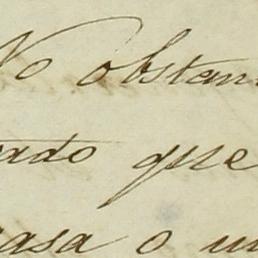 No obstan
ado que
casa o un